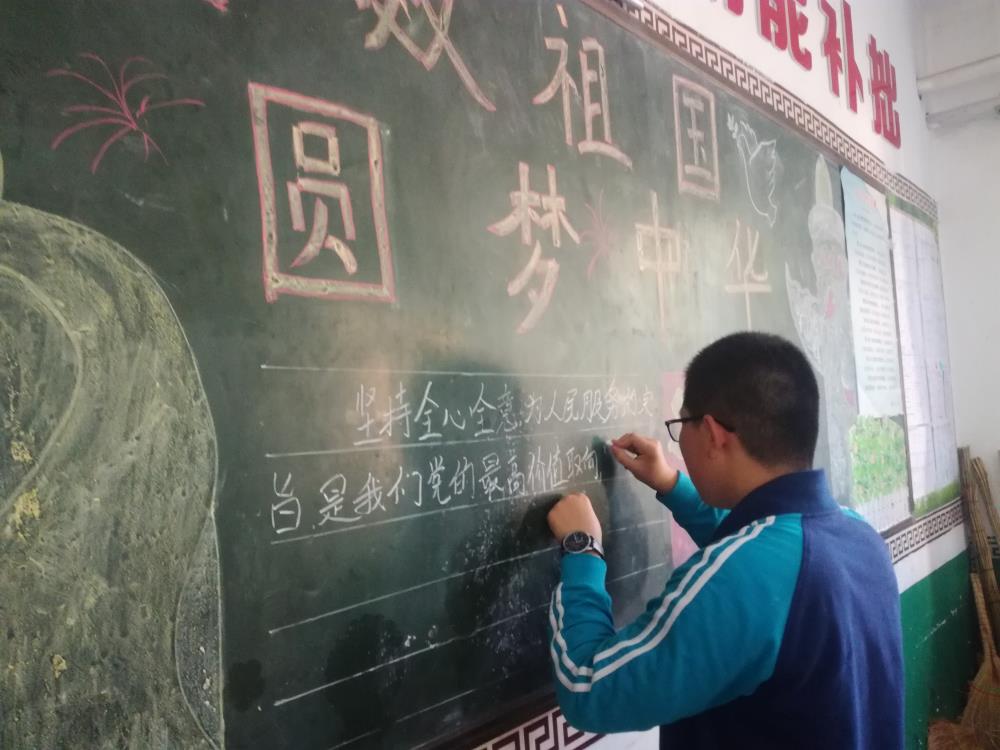 能补拙
祖国
圆梦中华
坚持全心全意为人民服务的宗
旨是我们党的最高价值取向